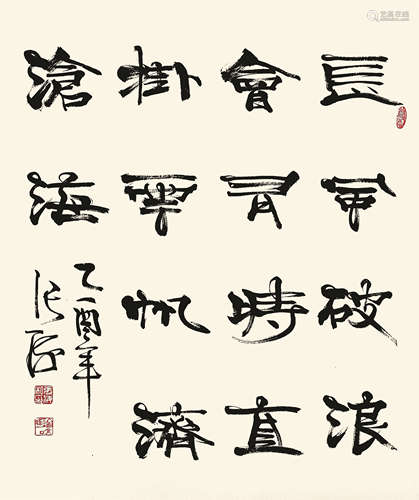 長風破浪
會有時直
掛雲帆濟
滄海
乙酉年